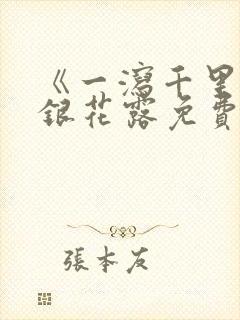 《一瀉千里
銀花露免費
張本友